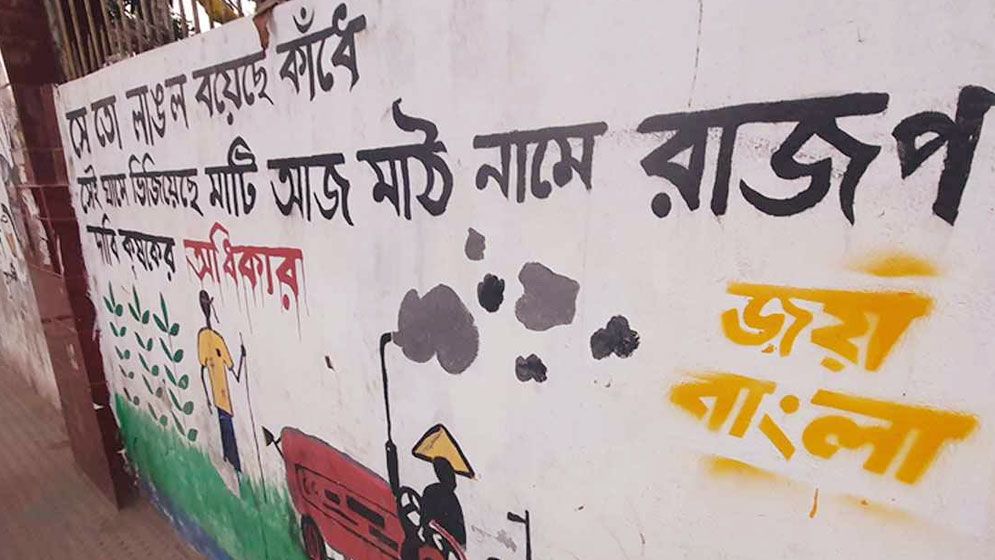 সে তো লাঙল বয়েছে কাঁধে
সেই ঘামে ভিজিয়েছে মাটি আজ মাঠ নামে রাজপ
দাবি কৃষকের অধিকার
জয়
বাংলা